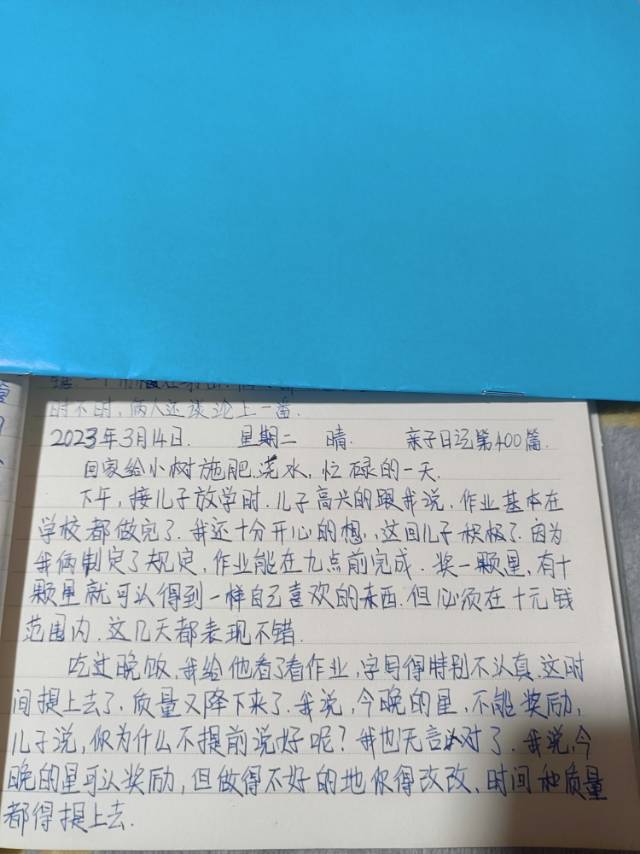 时不时，俩人还谈论上一番.
2023年3月14日. 星期二 晴. 亲子日记第400篇.
回家给小树施肥.浇水，忙碌的一天.
下午，接儿子放学时，儿子高兴的跟我说，作业基本在
学校都做完了.我还十分开心的想，这回儿子积极了.因为
我俩制定了规定，作业能在九点前完成.奖一颗星，有十
颗星就可以得到一样自己喜欢的东西.但必须在十元钱
范围内.这几天都表现不错.
吃过晚饭，我给他看了看作业，字写得特别不认真.这时
间提上去了，质量又降下来了.我说，今晚的星，不能奖励，
儿子说，你为什么不提前说好呢？我也无言以对了.我说，今
晚的星可以奖励，但做得不好的地你得改改，时间和质量
都得提上去.